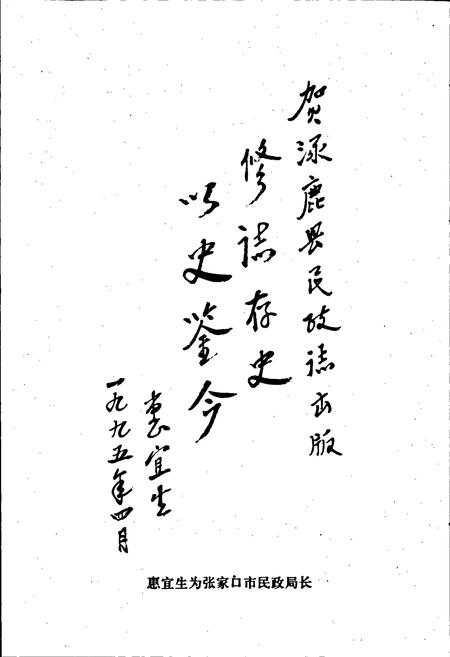 贺涿鹿县民政誌出版
修誌存史
以史鉴今
惠宜生
一九九五年四月
惠宜生为张家口市民政局长